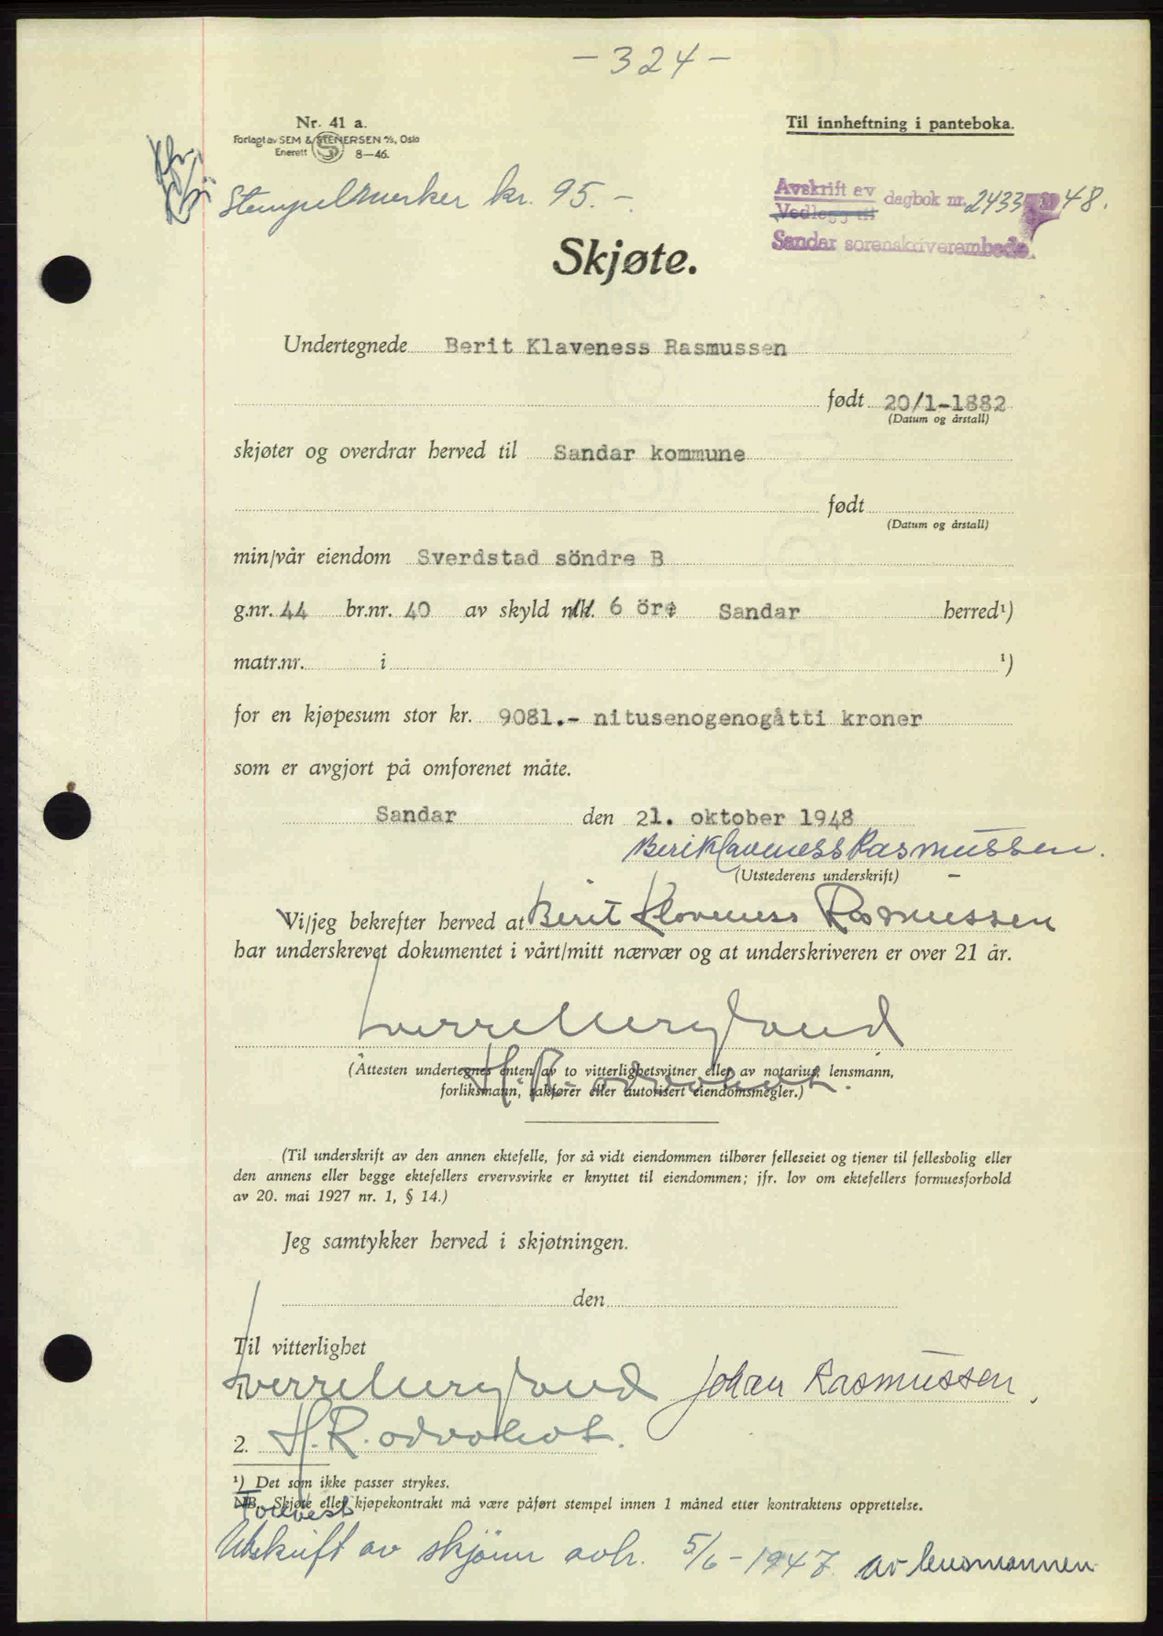 - 324 -
Nr. 41 a.
Forlagt av SEM & STENERSEN A/S, Oslo
Enerett 8-46.
Til innheftning i panteboka.
Stempelmerker kr. 95.-
Avskrift av
Vedlegg til
dagbok nr. 2433 48.
Sandar sorenskriverembede.
Skjøte.
Undertegnede Berit Klaveness Rasmussen
født 20/1-1882
(Datum og årstall)
skjøter og overdrar herved til Sandar kommune
født
(Datum og årstall)
min/vår eiendom Sverdstad söndre B
g.nr. 44 br.nr. 40 av skyld mk. 6 öre Sandar herred¹)
matr.nr. i ¹)
for en kjøpesum stor kr. 9081.- nitusenogenogåtti kroner
som er avgjort på omforenet måte.
Sandar den 21. oktober 1948
Berit Klaveness Rasmussen.
(Utstederens underskrift)
Vi/jeg bekrefter herved at Berit Klaveness Rasmussen
har underskrevet dokumentet i vårt/mitt nærvær og at underskriveren er over 21 år.
(Attesten undertegnes enten av to vitterlighetsvitner eller av notarius, lensmann,
H. R. advokat.
forliksmann, sakfører eller autorisert eiendomsmegler.)
(Til underskrift av den annen ektefelle, for så vidt eiendommen tilhører felleseiet og tjener til fellesbolig eller
den annens eller begge ektefellers ervervsvirke er knyttet til eiendommen; jfr. lov om ektefellers formuesforhold
av 20. mai 1927 nr. 1, § 14.)
Jeg samtykker herved i skjøtningen.
den
Til vitterlighet
1. Johan Rasmussen
2. H. R. advokat.
¹) Det som ikke passer strykes.
NB. Skjøte eller kjøpekontrakt må være påført stempel innen 1 måned etter kontraktens opprettelse.
Forevist
Utskrift av skjönn avh. 5/6-1947 av lensmannen